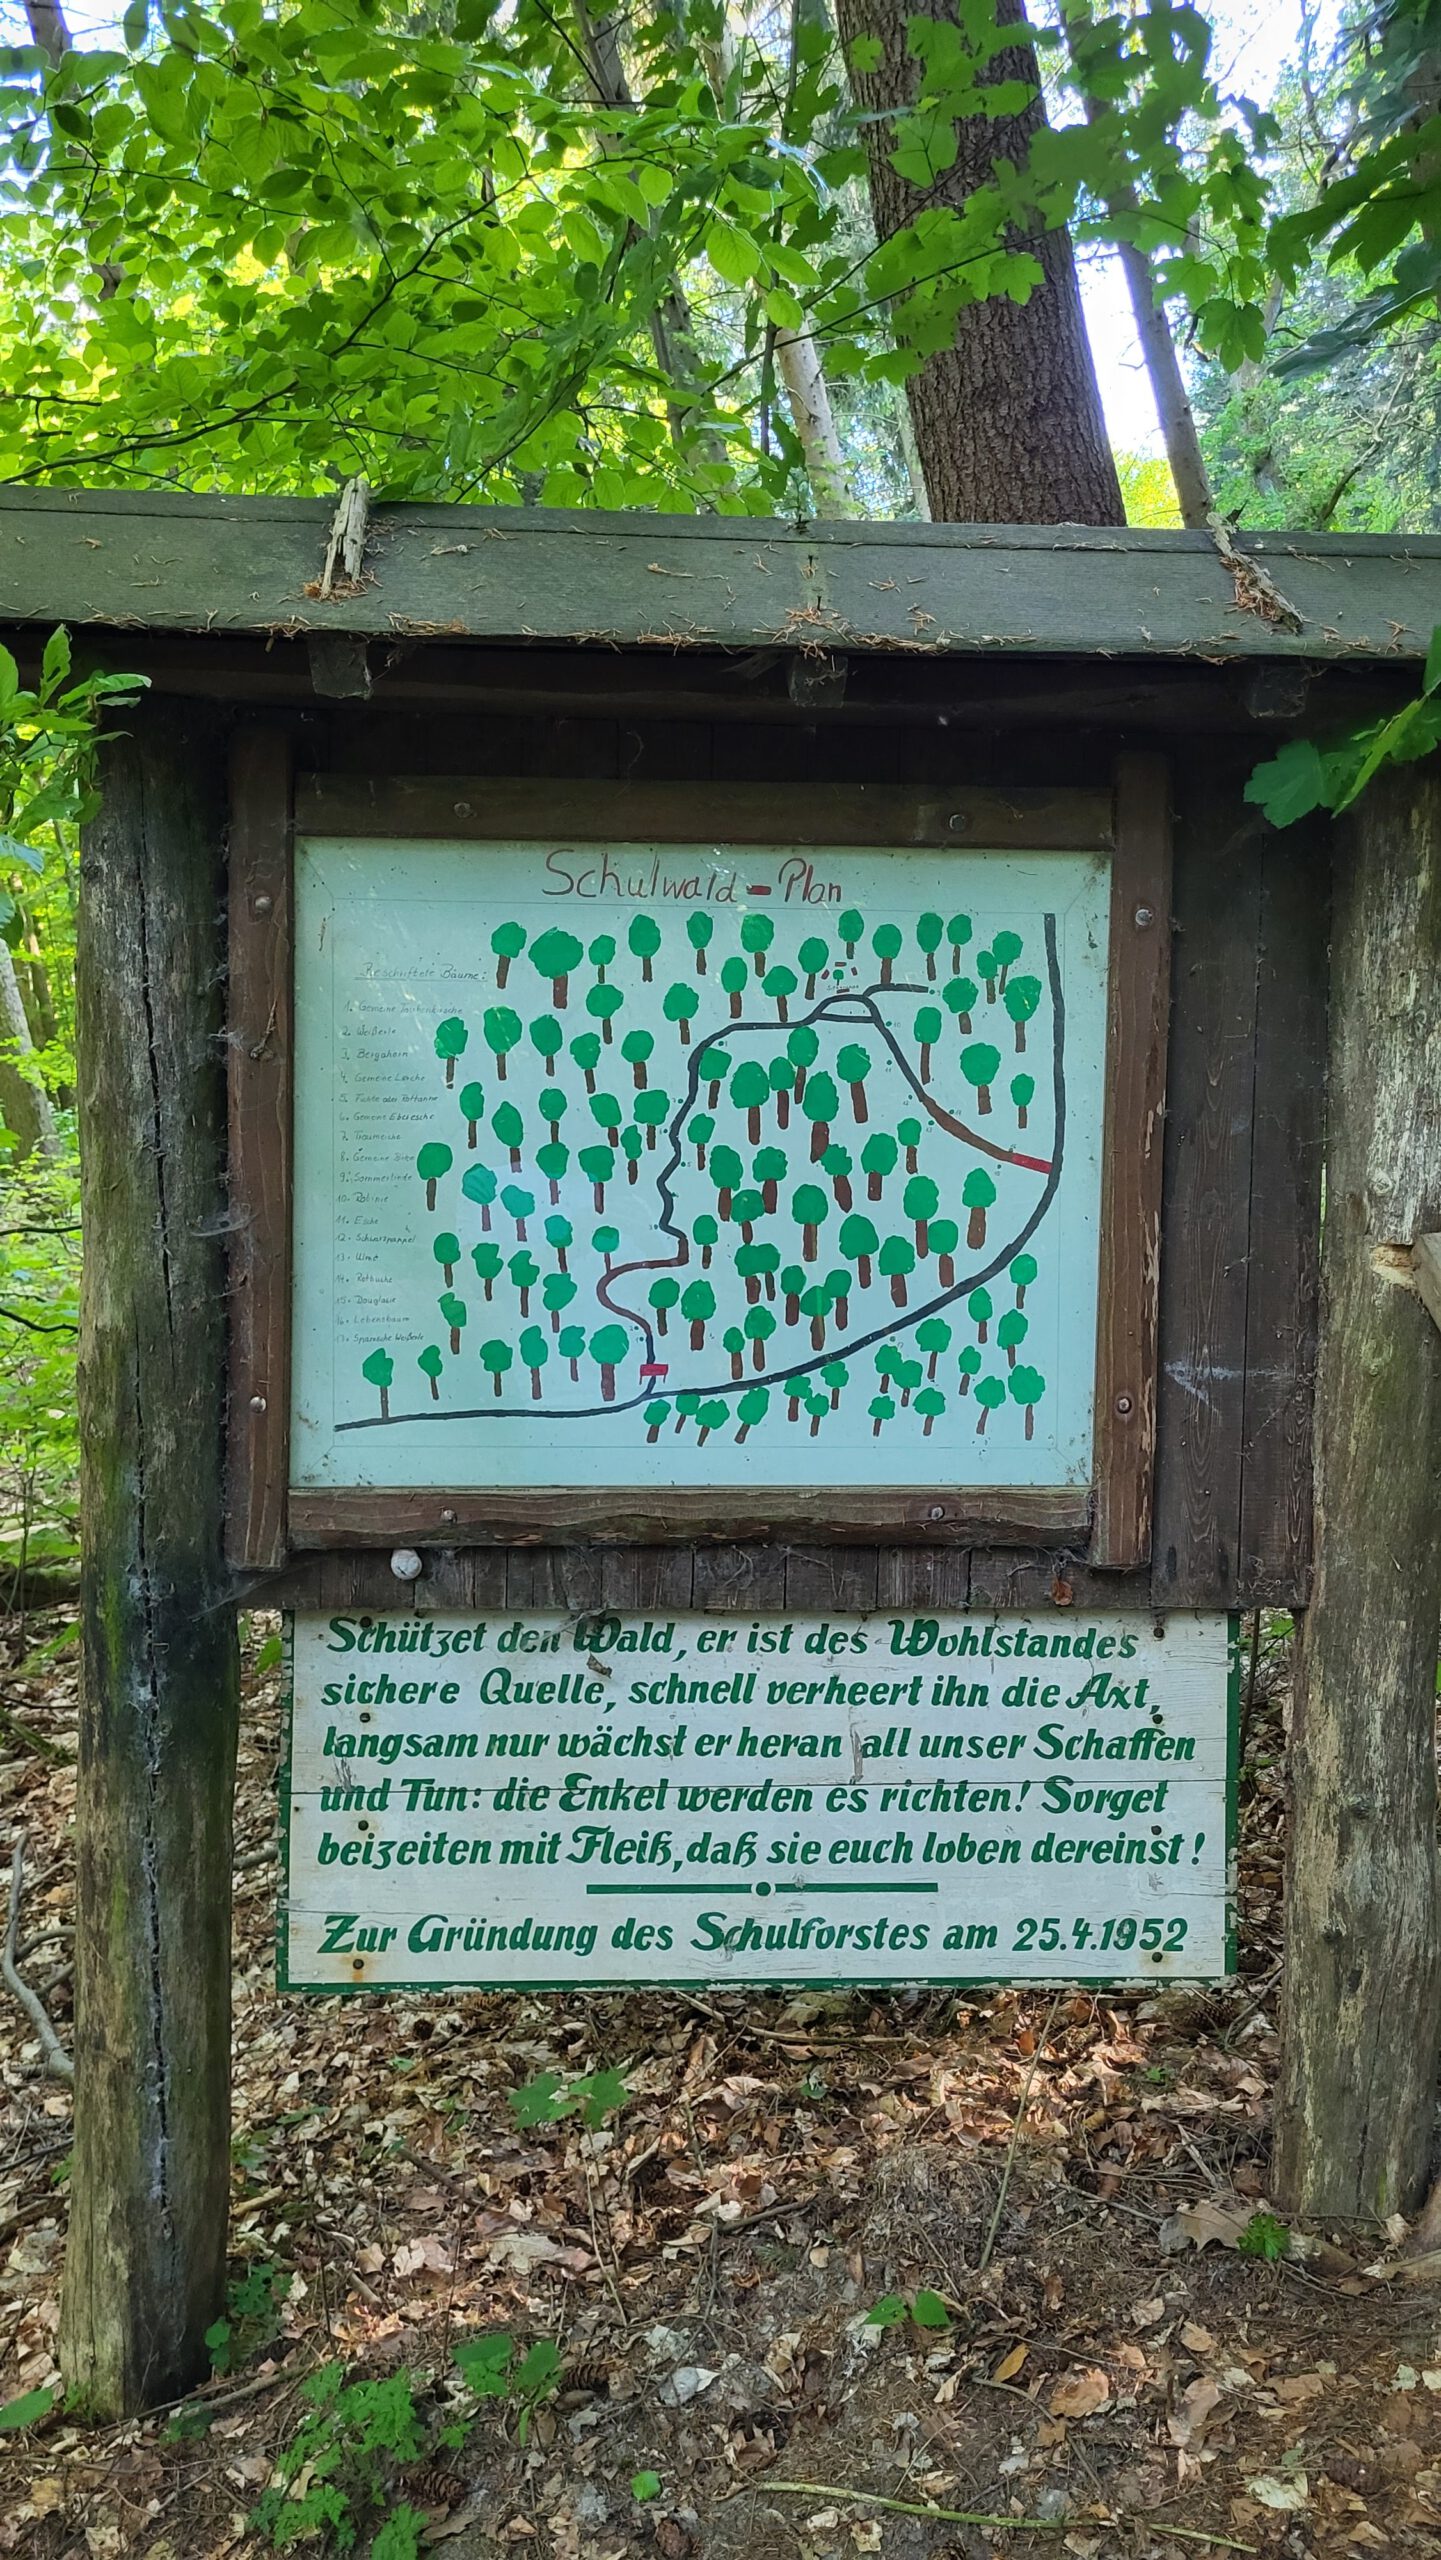 Schulwald - Plan
Beschriftete Bäume:
1. Gemeine Traubenkirsche
2. Weißerle
3. Bergahorn
4. Gemeine Lärche
5. Fichte oder Rottanne
6. Gemeine Eberesche
7. Traubeneiche
8. Gemeine Birke
9. Sommerlinde
10. Robinie
11. Esche
12. Schwarzpappel
13. Ulme
14. Rotbuche
15. Douglasie
16. Lebensbaum
17. Spätische Weißerle
Schützet den Wald, er ist des Wohlstandes
sichere Quelle, schnell verheert ihn die Axt,
langsam nur wächst er heran all unser Schaffen
und Tun: die Enkel werden es richten! Sorget
beizeiten mit Fleiß, daß sie euch loben dereinst!
Zur Gründung des Schulforstes am 25.4.1952